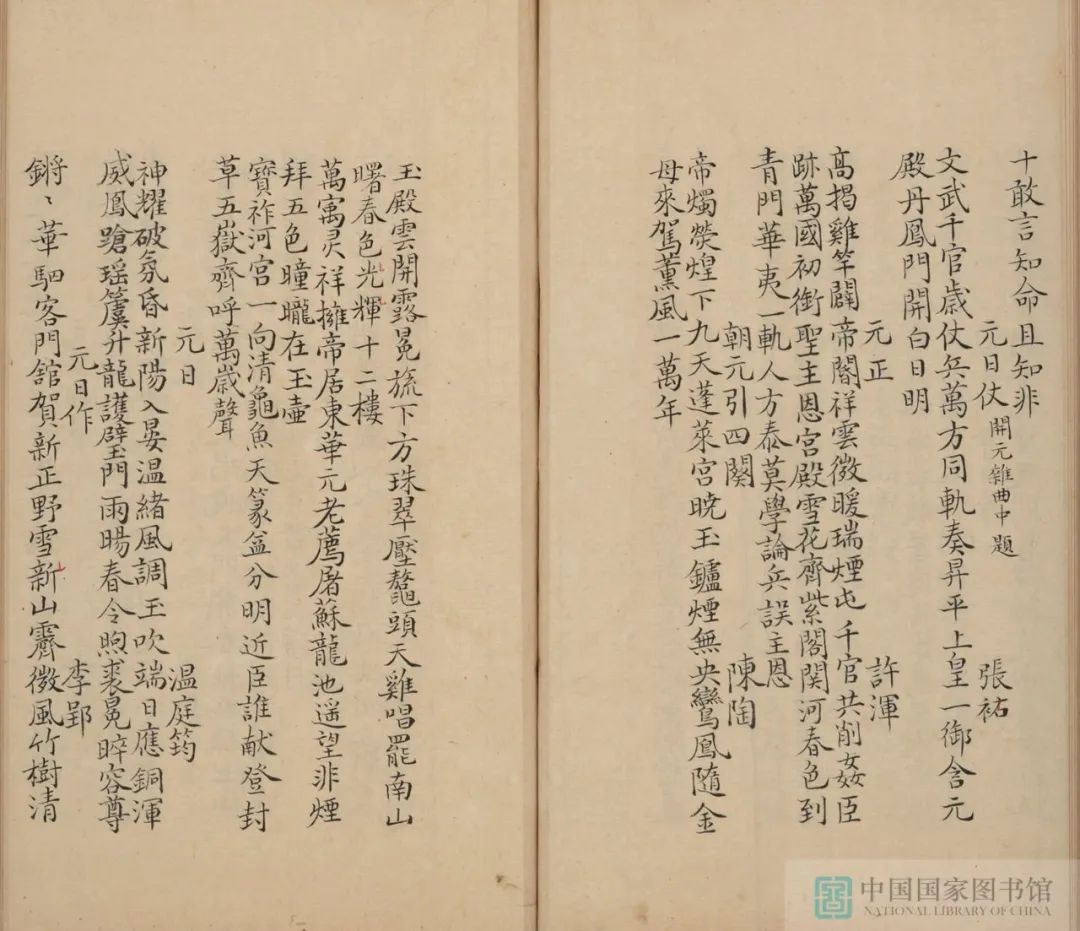 十敢言知命且知非
元日仗 開元雜曲中題 張祐
文武千官歲仗兵萬方同軌奏昇平上皇一御含元
殿丹鳳門開白日明
元正 許渾
高揭雞竿闢帝閽祥雲微暖瑞煙屯千官共削姦臣
跡萬國初銜聖主恩宮殿雪花齊紫閣関河春色到
青門華夷一軌人方泰莫學論兵誤主恩
朝元引四闋 陳陶
帝燭熒煌下九天蓬萊宮曉玉鑪煙無央鸞鳳隨金
母來駕薰風一萬年
玉殿雲開露冕旒下方珠翠壓鼇頭天雞唱罷南山
曙春色光輝十二樓
萬寓灵祥擁帝居東華元老薦屠蘇龍池遥望非煙
拜五色曈曨在玉壺
寶祚河宮一向清龜魚天篆益分明近臣誰献登封
草五嶽齊呼萬歲聲
元日 温庭筠
神耀破氛昏新陽入晏温緒風調玉吹端日應銅渾
威鳳蹌瑶簴升龍護璧門雨暘春令煦裘冕睟容尊
元日作 李郢
鏘〻華駟客門館賀新正野雪新山霽微風竹樹清
中国国家图书馆
NATIONAL LIBRARY OF CHINA